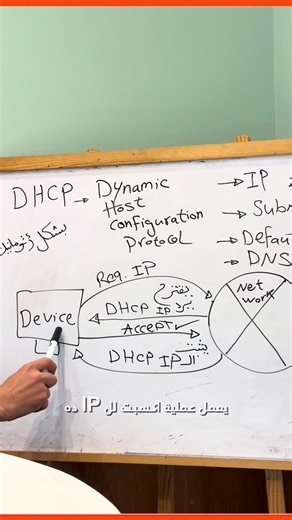 DHCP → Dynamic → IP
Host → Sub
Configuration → Defau
Protocol → DNS
بشكل
Req. IP
Net work
يقترح
DHCP IP
Device
ACCEPT
يثبت
DHCP الـ IP
يعمل عملية اكسبت لل IP ده